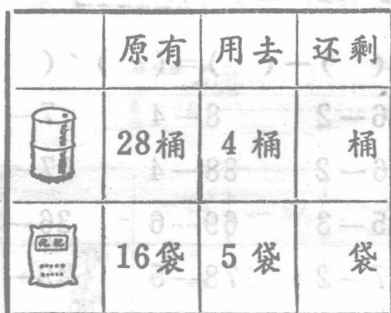 原有 用去 还剩
28桶 4桶 桶
化肥
16袋 5袋 袋